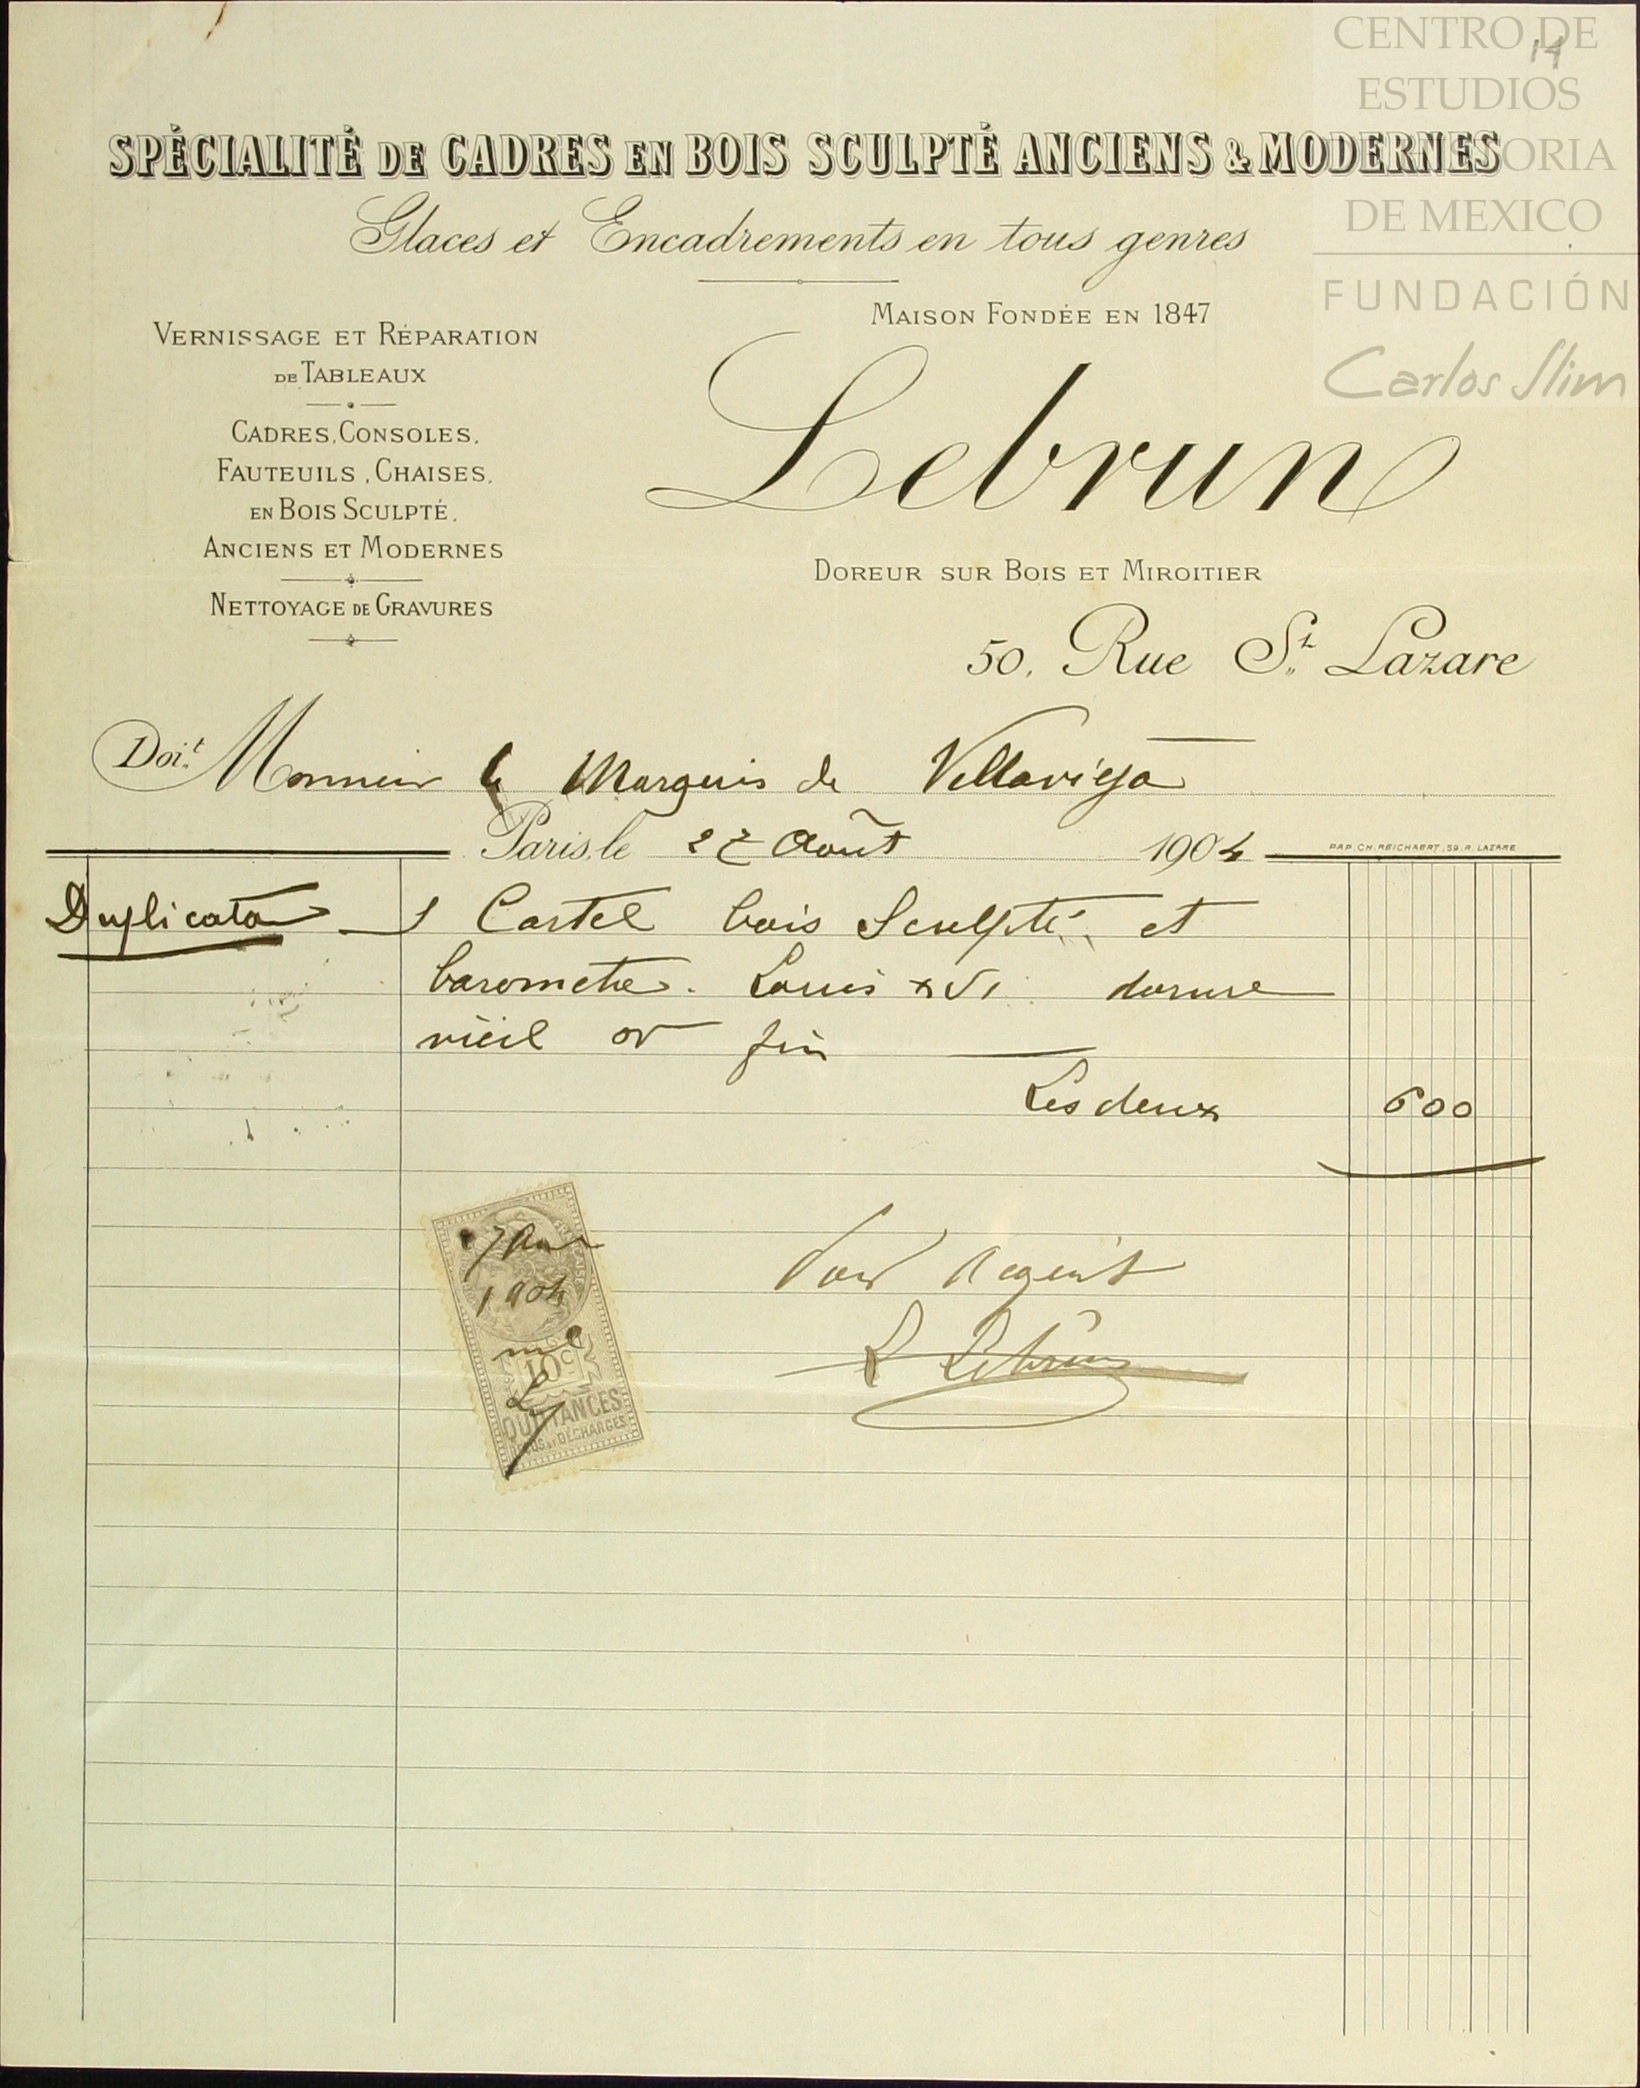 CENTRO DE
ESTUDIOS
ORIA
DE MEXICO
FUNDACIÓN
Carlos Slim
14
SPÉCIALITÉ DE CADRES EN BOIS SCULPTÉ ANCIENS & MODERNES
Glaces et Encadrements en tous genres
MAISON FONDÉE EN 1847
VERNISSAGE ET RÉPARATION
DE TABLEAUX
CADRES, CONSOLES,
FAUTEUILS, CHAISES,
EN BOIS SCULPTÉ,
ANCIENS ET MODERNES
NETTOYAGE DE GRAVURES
Lebrun
DOREUR SUR BOIS ET MIROITIER
50, Rue St. Lazare
Doit Monsieur le Marquis de Villavieja
Paris, le 27 Août 1904
PAP. CH. REICHAERT, 59, R. LAZARE
Duplicata 1 Cartel bois Sculpté et
barometre. Louis XVI dorure
vieil or fin
Les deux 600
Pour Acquit
L Lebrun
1904
10c
QUITTANCES
REÇUS & DÉCHARGES